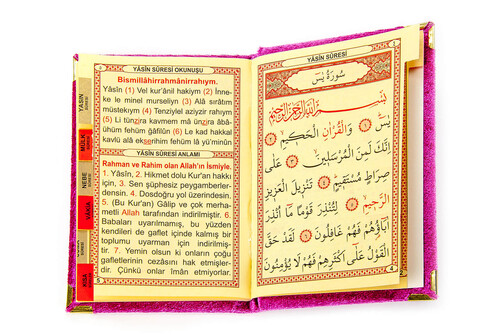 YÂSÎN SÛRESİ OKUNUŞU
Bismillâhirrahmânirrahym.
Yâsîn (1) Vel kur'ânil hakiym (2) İnne-
ke le minel murseliyn (3) Alâ sırâtım
müstekıym (4) Tenziylel aziyzir rahıym
(5) Li tünzira kavmem mâ ünzira âbâ-
ühüm fehüm gâfilûn (6) Le kad hakkal
kavlü alâ ekserihim fehüm lâ yü'minûn
YÂSÎN SÛRESİ ANLAMI
Rahman ve Rahim olan Allah'ın İsmiyle.
1. Yâsîn, 2. Hikmet dolu Kur'an hakkı
için, 3. Sen şüphesiz peygamberler-
densin. 4. Dosdoğru yol üzerindesin.
5. (Bu Kur'an) Gâlip ve çok merha-
metli Allah tarafından indirilmiştir. 6.
Babaları uyarılmamış, bu yüzden
kendileri de gaflet içinde kalmış bir
toplumu uyarman için indirilmiş-
tir. 7. Yemin olsun ki onların çoğu
gafletlerinin cezasını hak etmişler-
dir. Çünkü onlar îmân etmiyorlar.
YASİN
SÛRESİ
MÜLK
SÛRESİ
NEBE
SÛRESİ
VAKIA
SÛRESİ
KISA
SÛRELER
YÂSÎN SÛRESİ
سُورَةُ يٰسٓ
بِسْمِ اللّٰهِ الرَّحْمٰنِ الرَّحِيمِ
يٰسٓ ﴿١﴾ وَالْقُرْاٰنِ الْحَكِيمِ ﴿٢﴾
اِنَّكَ لَمِنَ الْمُرْسَلِينَ ﴿٣﴾ عَلٰى
صِرَاطٍ مُسْتَقِيمٍ ﴿٤﴾ تَنْزِيلَ الْعَزِيزِ
الرَّحِيمِ ﴿٥﴾ لِتُنْذِرَ قَوْمًا مَٓا اُنْذِرَ
اٰبَٓاؤُهُمْ فَهُمْ غَافِلُونَ ﴿٦﴾ لَقَدْ حَقَّ
الْقَوْلُ عَلٰٓى اَكْثَرِهِمْ فَهُمْ لَا يُؤْمِنُونَ
4